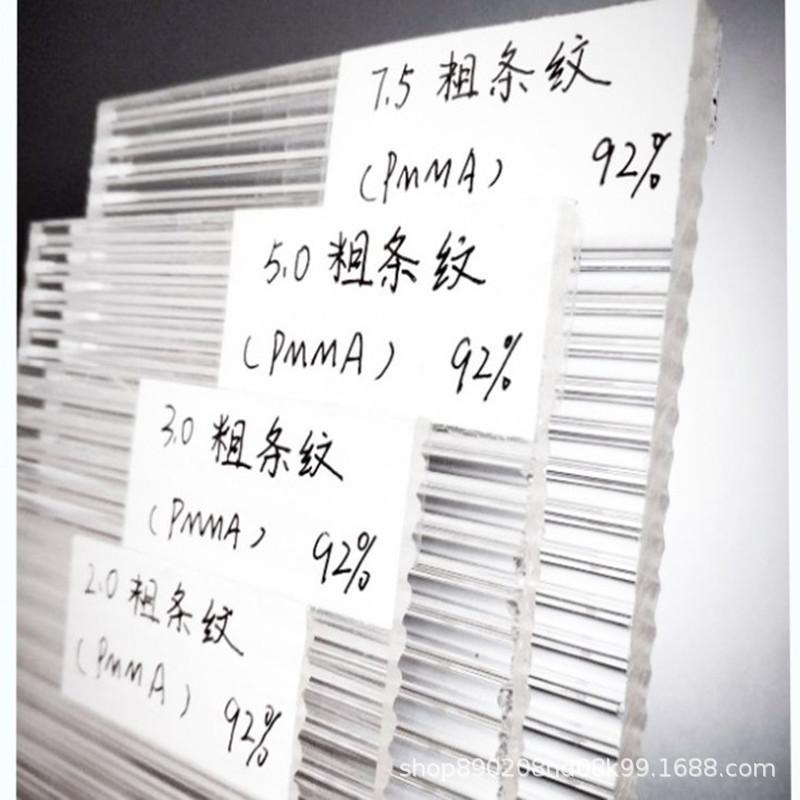 7.5 粗条纹
(PMMA) 92%
5.0 粗条纹
(PMMA) 92%
3.0 粗条纹
(PMMA) 92%
2.0 粗条纹
(PMMA) 92%
shop890208hd08k99.1688.com